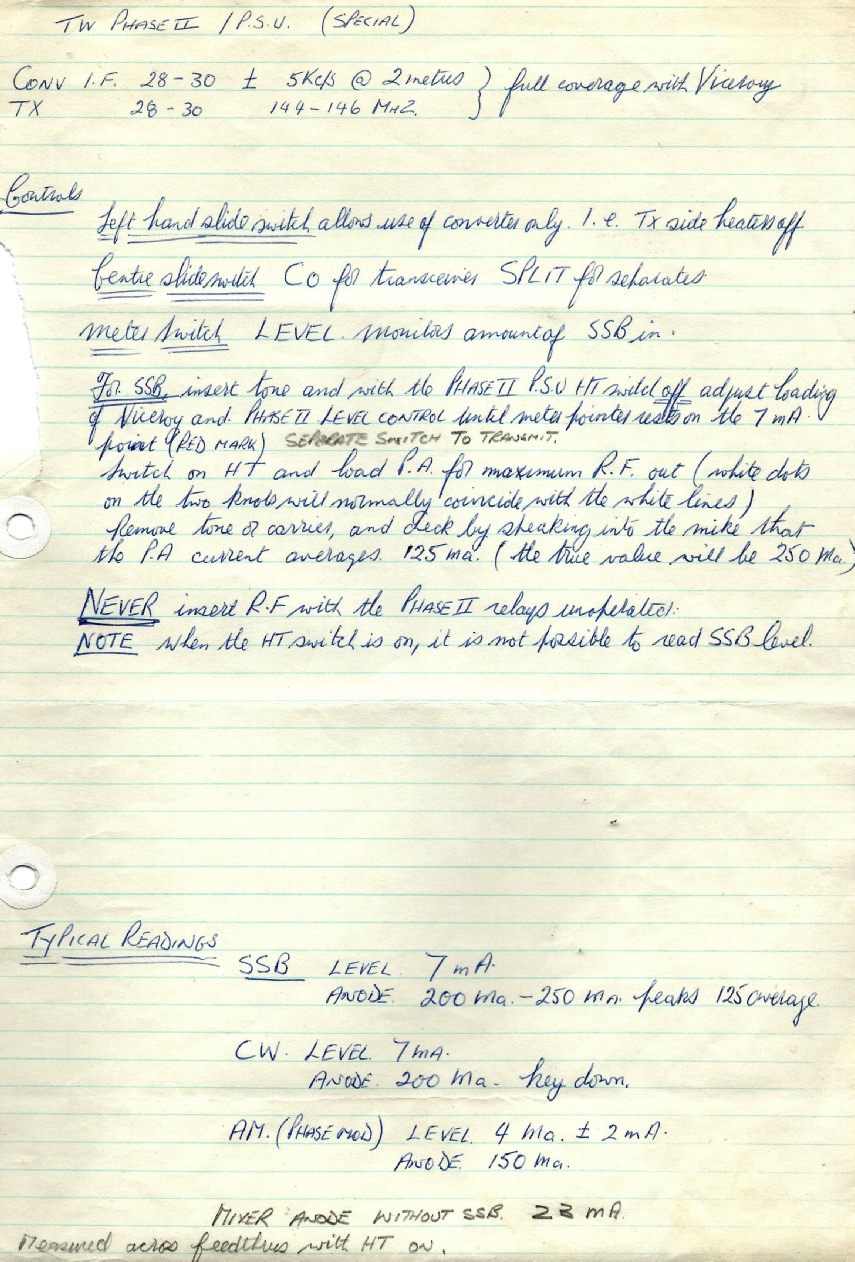 TW PHASE II / P.S.U. (SPECIAL)
CONV I.F. 28-30 ± 5Kc/s @ 2 metres } full coverage with Viceroy
TX 28-30 144-146 MHZ.
Controls
Left hand slide switch allows use of converter only. I.e. Tx side heaters off
Centre slide switch CO for transceives SPLIT for separates
Meter Switch LEVEL. monitors amount of SSB in.
For SSB, insert tone and with the PHASE II P.S.U HT switch off adjust loading
of Viceroy and PHASE II LEVEL CONTROL until meter pointer rests on the 7 mA.
point (RED MARK) SEPERATE SWITCH TO TRANSMIT.
Switch on HT and load P.A. for maximum R.F. out (white dots
on the two knobs will normally coincide with the white lines)
Remove tone or carrier, and check by speaking into the mike that
the P.A current averages. 125 ma. (the true value will be 250 Ma.)
NEVER insert R.F with the PHASE II relays unoperated.
NOTE when the HT switch is on, it is not possible to read SSB level.
TYPICAL READINGS
SSB LEVEL. 7 mA.
ANODE. 200 Ma. - 250 Ma. peaks 125 average.
CW. LEVEL. 7 ma.
ANODE. 200 Ma. key down.
AM. (PHASE MOD) LEVEL. 4 Ma. ± 2 mA.
ANODE. 150 Ma.
MIXER ANODE WITHOUT SSB. 23 mA.
Measured across feedthrus with HT ON.